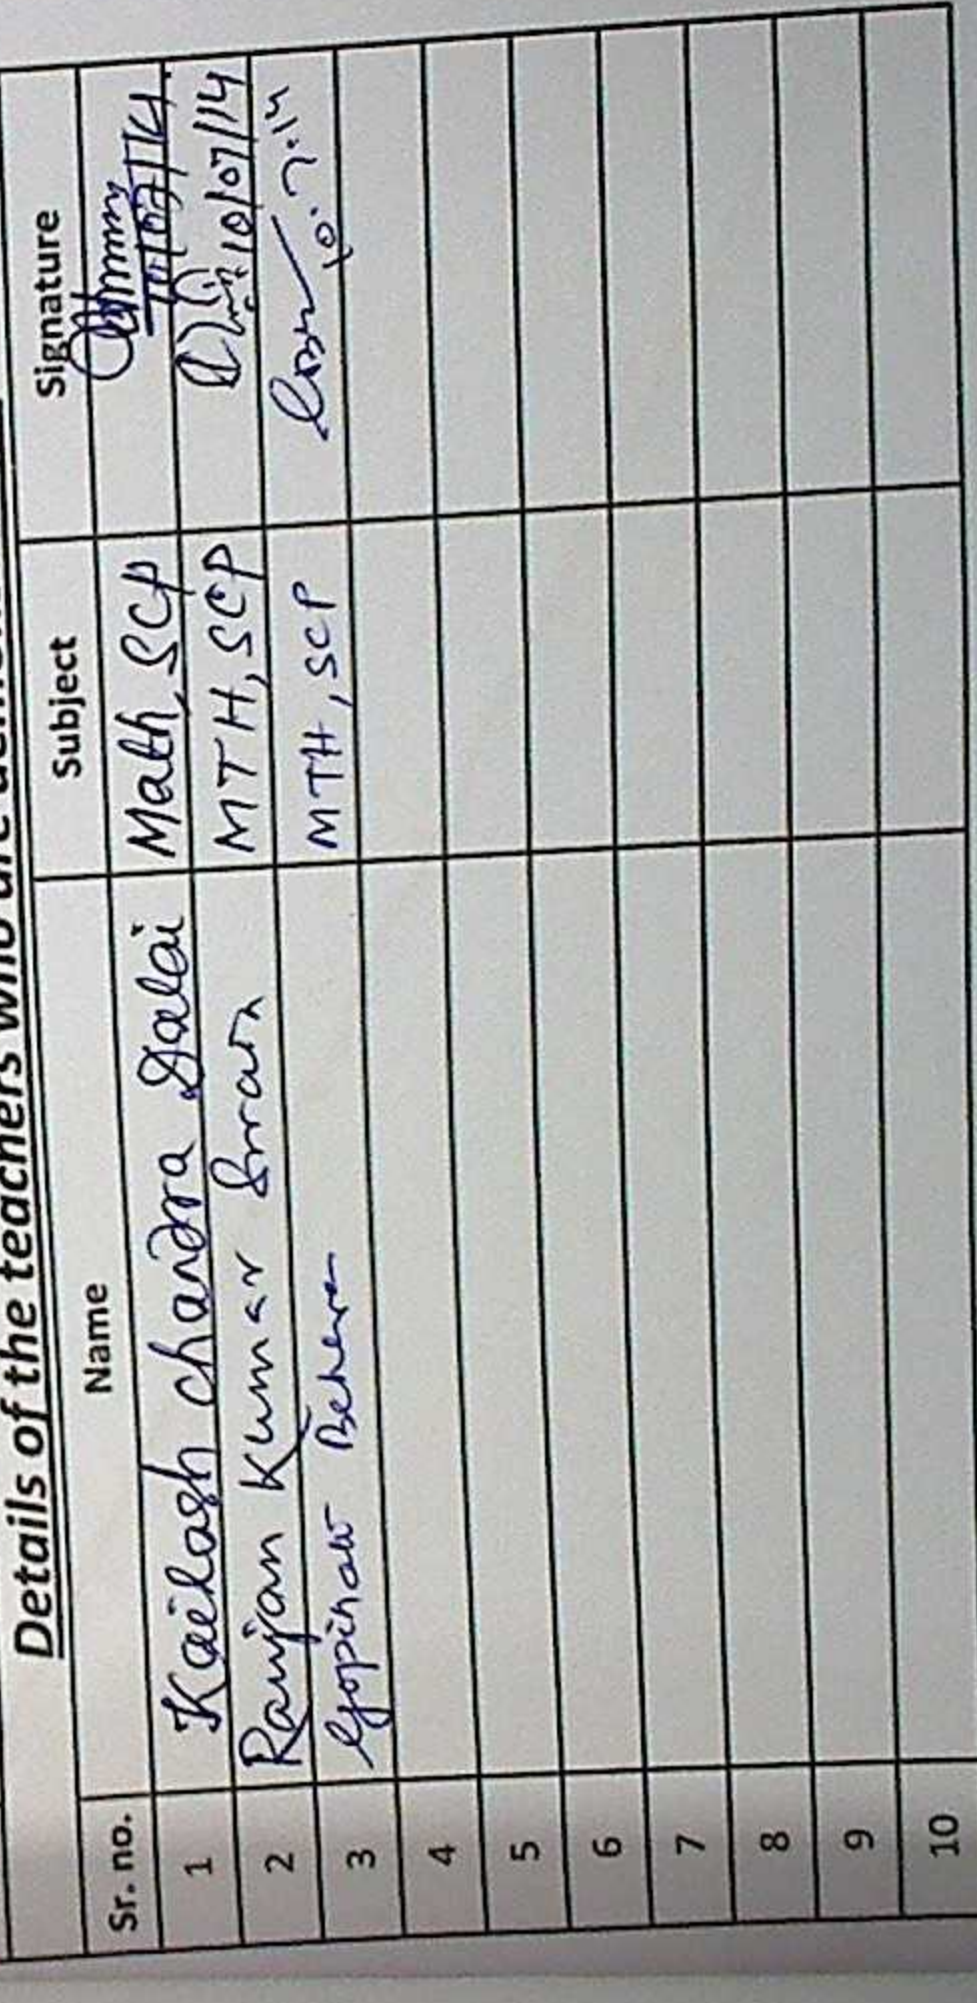 Details of the teachers who are
Sr. no. Name Subject Signature
1 Kailash chandra Dalai Math, SCP 10/07/14
2 Ranjan Kumar Swain MTH, SCP 10/07/14
3 Gopinath Behera MTH, SCP 10.7.14
4
5
6
7
8
9
10